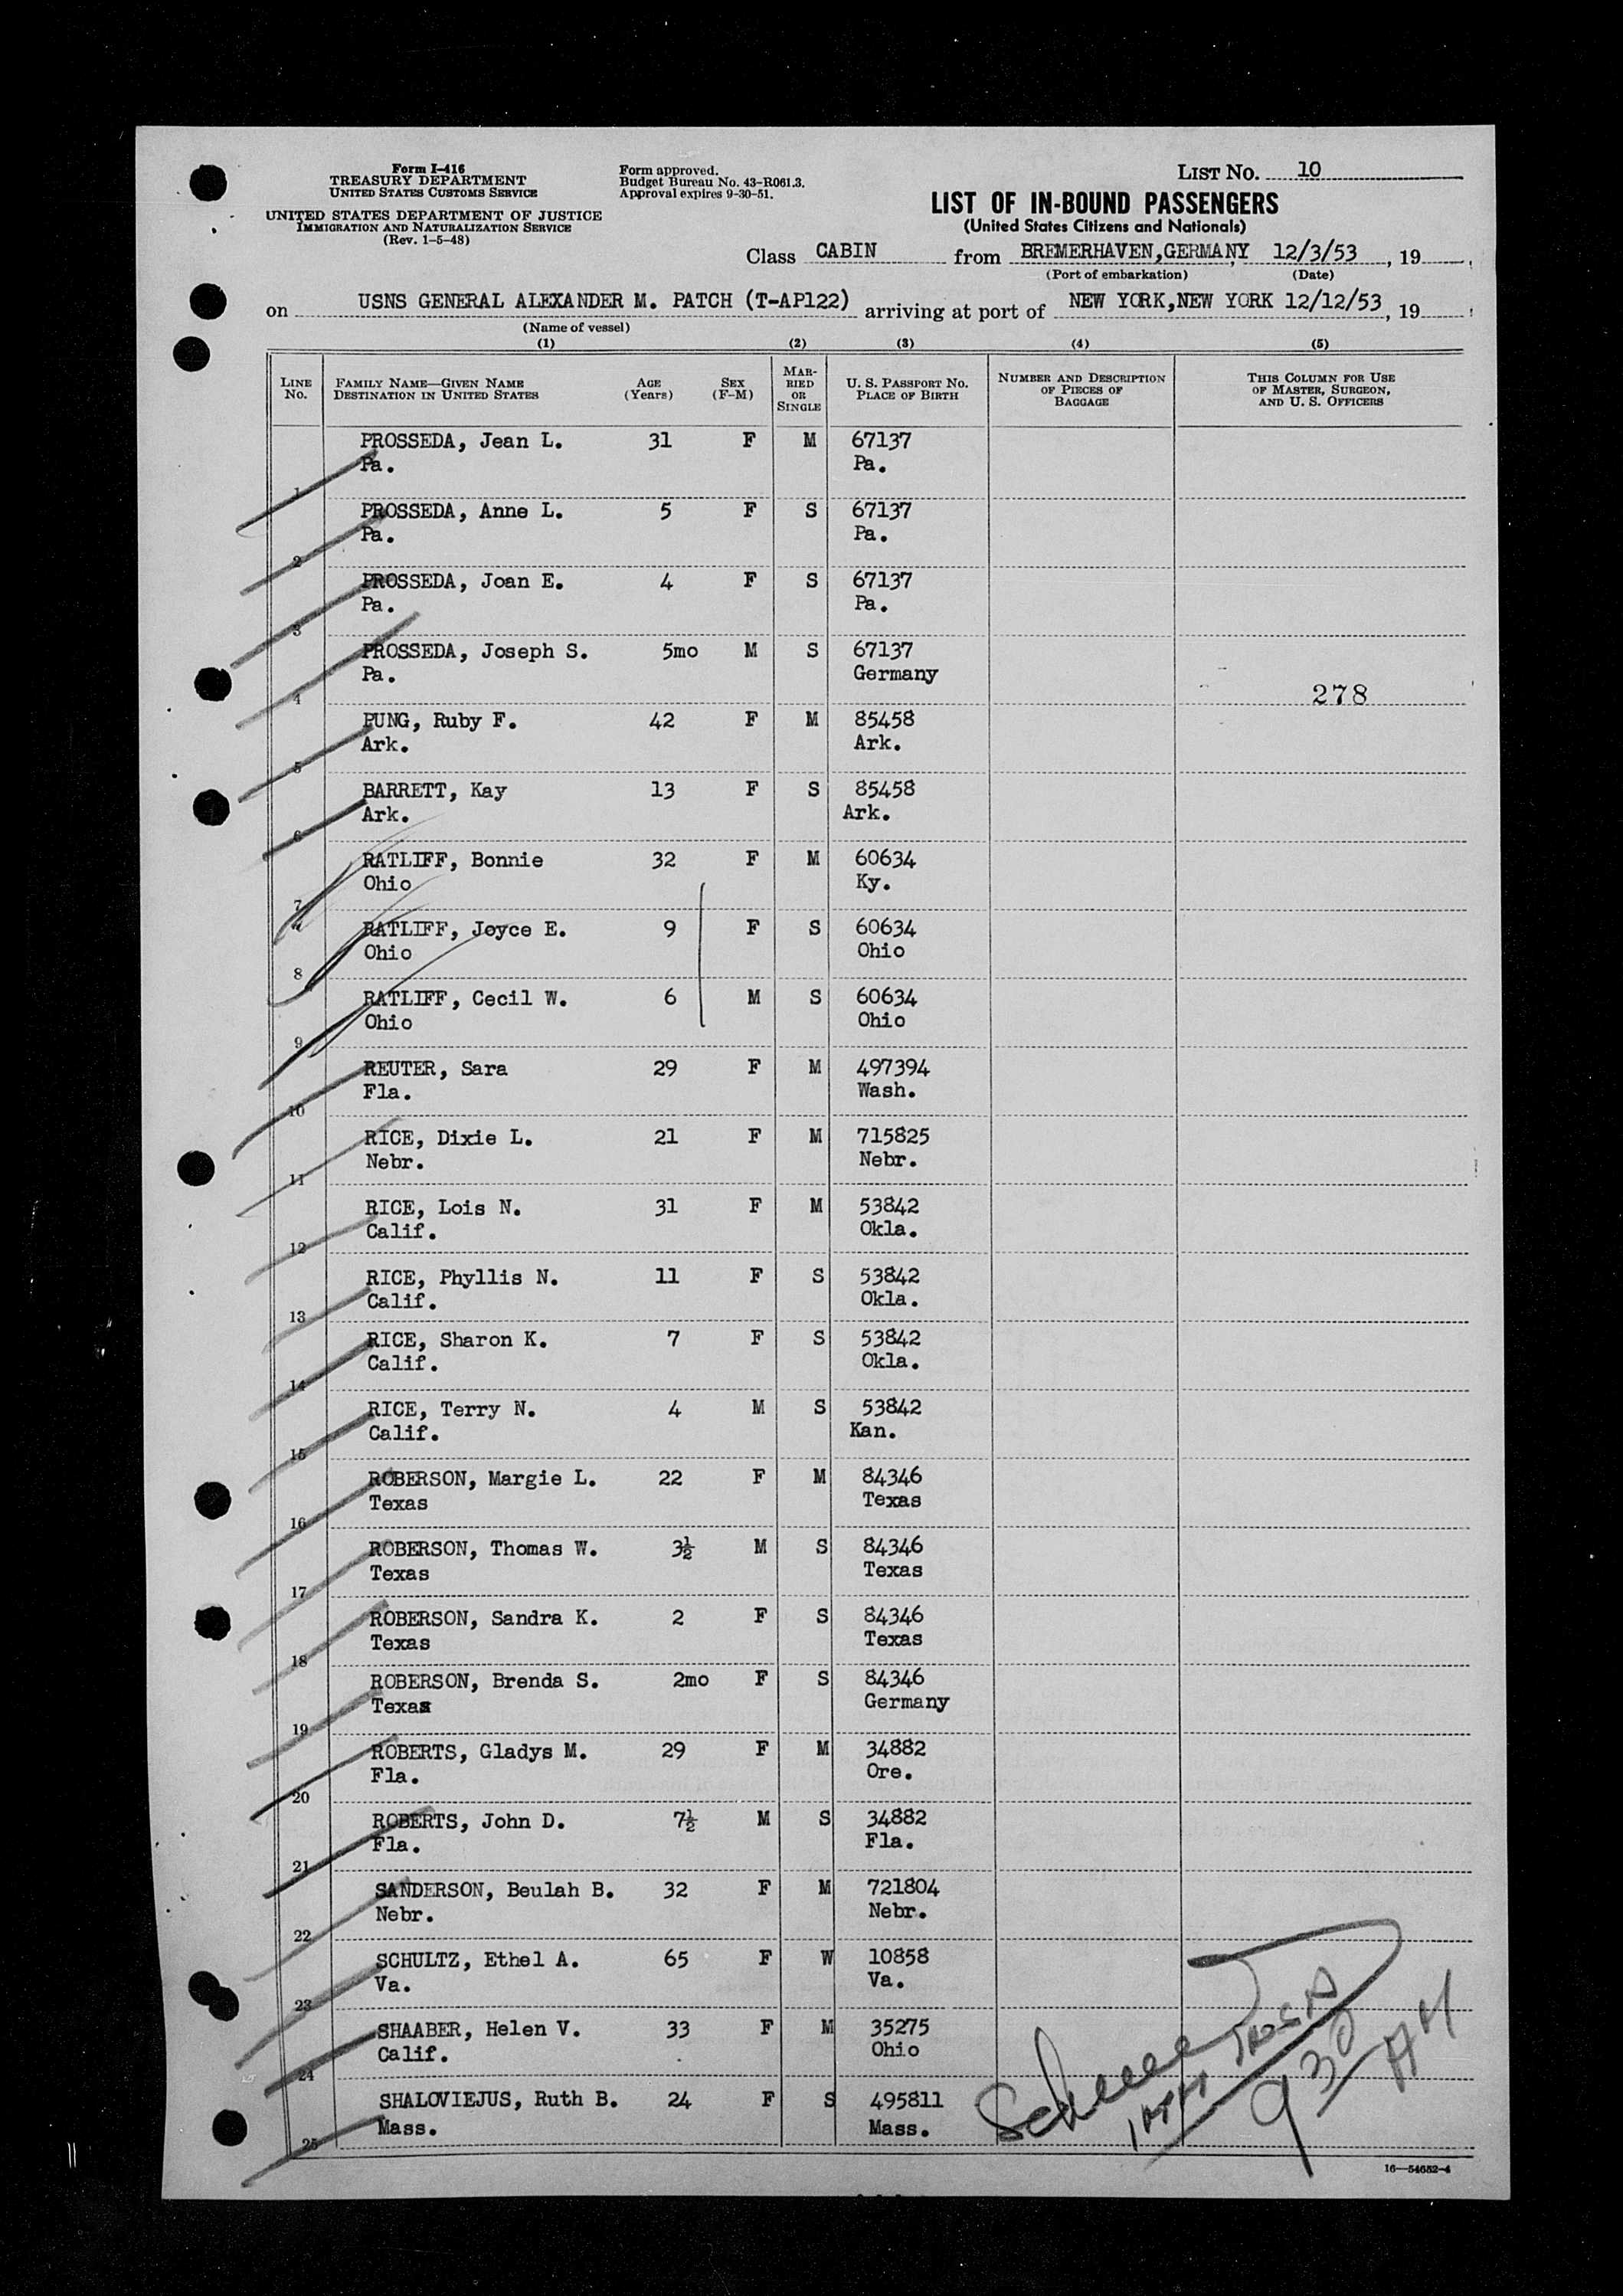 Form I-416
TREASURY DEPARTMENT
UNITED STATES CUSTOMS SERVICE
UNITED STATES DEPARTMENT OF JUSTICE
IMMIGRATION AND NATURALIZATION SERVICE
(Rev. 1-5-48)
Form approved.
Budget Bureau No. 43-R061.3.
Approval expires 9-30-51.
LIST No. 10
LIST OF IN-BOUND PASSENGERS
(United States Citizens and Nationals)
Class CABIN from BREMERHAVEN,GERMANY, 12/3/53, 19
(Port of embarkation) (Date)
on USNS GENERAL ALEXANDER M. PATCH (T-AP122) arriving at port of NEW YORK,NEW YORK 12/12/53, 19
(Name of vessel)
(1) (2) (3) (4) (5)
LINE No. FAMILY NAME—GIVEN NAME DESTINATION IN UNITED STATES AGE (Years) SEX (F-M) MARRIED OR SINGLE U. S. PASSPORT No. PLACE OF BIRTH NUMBER AND DESCRIPTION OF PIECES OF BAGGAGE THIS COLUMN FOR USE OF MASTER, SURGEON, AND U. S. OFFICERS
PROSSEDA, Jean L. 31 F M 67137
Pa. Pa.
1
PROSSEDA, Anne L. 5 F S 67137
Pa. Pa.
2
PROSSEDA, Joan E. 4 F S 67137
Pa. Pa.
3
PROSSEDA, Joseph S. 5mo M S 67137
Pa. Germany
4 278
PUNG, Ruby F. 42 F M 85458
Ark. Ark.
5
BARRETT, Kay 13 F S 85458
Ark. Ark.
6
RATLIFF, Bonnie 32 F M 60634
Ohio Ky.
7
RATLIFF, Joyce E. 9 F S 60634
Ohio Ohio
8
RATLIFF, Cecil W. 6 M S 60634
Ohio Ohio
9
REUTER, Sara 29 F M 497394
Fla. Wash.
10
RICE, Dixie L. 21 F M 715825
Nebr. Nebr.
11
RICE, Lois N. 31 F M 53842
Calif. Okla.
12
RICE, Phyllis N. 11 F S 53842
Calif. Okla.
13
RICE, Sharon K. 7 F S 53842
Calif. Okla.
14
RICE, Terry N. 4 M S 53842
Calif. Kan.
15
ROBERSON, Margie L. 22 F M 84346
Texas Texas
16
ROBERSON, Thomas W. 3½ M S 84346
Texas Texas
17
ROBERSON, Sandra K. 2 F S 84346
Texas Texas
18
ROBERSON, Brenda S. 2mo F S 84346
Texas Germany
19
ROBERTS, Gladys M. 29 F M 34882
Fla. Ore.
20
ROBERTS, John D. 7½ M S 34882
Fla. Fla.
21
SANDERSON, Beulah B. 32 F M 721804
Nebr. Nebr.
22
SCHULTZ, Ethel A. 65 F W 10858
Va. Va.
23
SHAABER, Helen V. 33 F M 35275
Calif. Ohio
24
SHALOVIEJUS, Ruth B. 24 F S 495811
Mass. Mass.
25
9 30 AM
16—54652-4